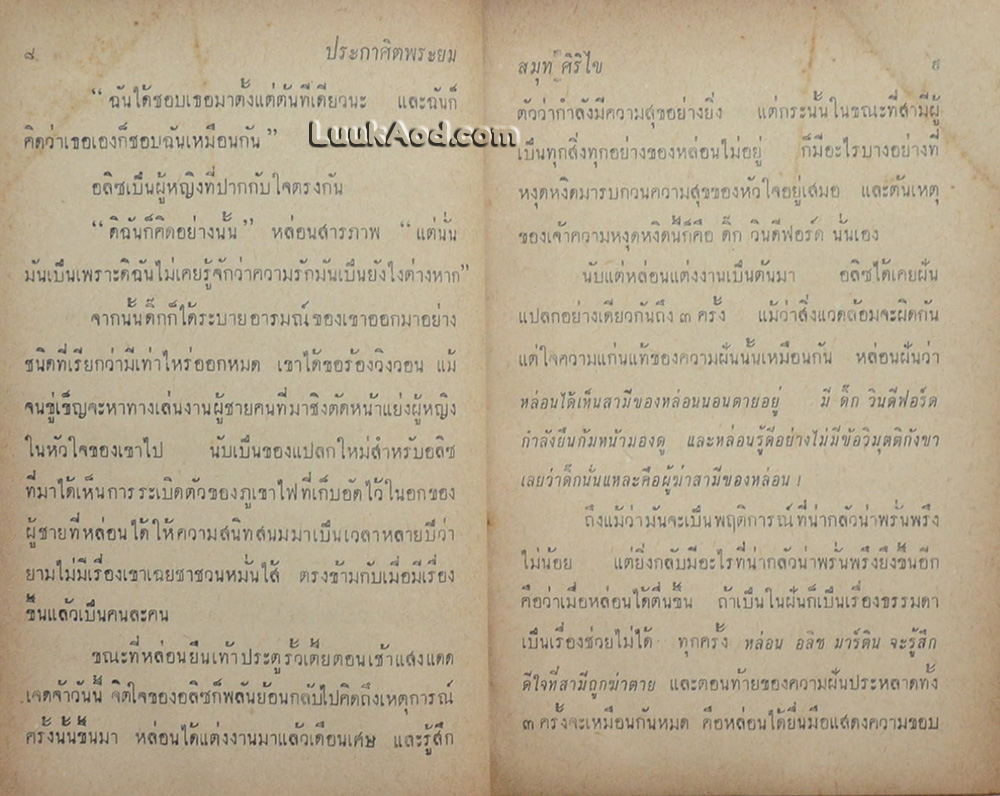 ๘ ประกาศิตพระยม
“ ฉันได้ชอบเธอมาตั้งแต่ต้นทีเดียวนะ และฉันก็
คิดว่าเธอเองก็ชอบฉันเหมือนกัน ”
LuukAod.com
อลิซเป็นผู้หญิงที่ปากกับใจตรงกัน
“ ดิฉันก็คิดอย่างนั้น ” หล่อนสารภาพ “ แต่นั่น
มันเป็นเพราะดิฉันไม่เคยรู้จักว่าความรักมันเป็นยังไงต่างหาก”
จากนั้นดิ๊กก็ได้ระบายอารมณ์ของเขาออกมาอย่าง
ชนิดที่เรียกว่ามีเท่าไหร่ออกหมด เขาได้ขอร้องวิงวอน แม้
จนขู่เข็ญจะหาทางเล่นงานผู้ชายคนที่มาชิงตัดหน้าแย่งผู้หญิง
ในหัวใจของเขาไป นับเป็นของแปลกใหม่สำหรับอลิซ
ที่มาได้เห็นการระเบิดตัวของภูเขาไฟที่เก็บอัดไว้ในอกของ
ผู้ชายที่หล่อนได้ให้ความสนิทสนมมาเป็นเวลาหลายปีว่า
ยามไม่มีเรื่องเขาเฉยชาชวนหมั่นไส้ ตรงข้ามกับเมื่อมีเรื่อง
ขึ้นแล้วเป็นคนละคน
ขณะที่หล่อนยืนเท้าประตูรั้วเตี้ยตอนเช้าแสงแดด
เจิดจ้าวันนี้ จิตใจของอลิซก็พลันย้อนกลับไปคิดถึงเหตุการณ์
ครั้งนั้นขึ้นมา หล่อนได้แต่งงานมาแล้วเดือนเศษ และรู้สึก
สมุท ศิริไข ๙
ตัวว่ากำลังมีความสุขอย่างยิ่ง แต่กระนั้นในขณะที่สามีผู้
เป็นทุกสิ่งทุกอย่างของหล่อนไม่อยู่ ก็มีอะไรบางอย่างที่
หงุดหงิดมารบกวนความสุขของหัวใจอยู่เสมอ และต้นเหตุ
ของเจ้าความหงุดหงิดนี้ก็คือ ดิ๊ก วินดีฟอร์ด นั่นเอง
นับแต่หล่อนแต่งงานเป็นต้นมา อลิซได้เคยฝัน
แปลกอย่างเดียวกันถึง ๓ ครั้ง แม้ว่าสิ่งแวดล้อมจะผิดกัน
แต่ใจความแก่นแท้ของความฝันนั้นเหมือนกัน หล่อนฝันว่า
หล่อนได้เห็นสามีของหล่อนนอนตายอยู่ มี ดิ๊ก วินดีฟอร์ด
กำลังยืนก้มหน้ามองดู และหล่อนรู้ดีอย่างไม่มีข้อวิมุตติกังขา
เลยว่าดิ๊กนั่นแหละคือผู้ฆ่าสามีของหล่อน !
ถึงแม้ว่ามันจะเป็นพฤติการณ์ที่น่ากลัวน่าพรั่นพรึง
ไม่น้อย แต่ยิ่งกลับมีอะไรที่น่ากลัวน่าพรั่นพรึงยิ่งขึ้นอีก
คือว่าเมื่อหล่อนได้ตื่นขึ้น ถ้าเป็นในฝันก็เป็นเรื่องธรรมดา
เป็นเรื่องช่วยไม่ได้ ทุกครั้ง หล่อน อลิซ มาร์ติน จะรู้สึก
ดีใจที่สามีถูกฆ่าตาย และตอนท้ายของความฝันประหลาดทั้ง
๓ ครั้งจะเหมือนกันหมด คือหล่อนได้ยื่นมือแสดงความขอบ